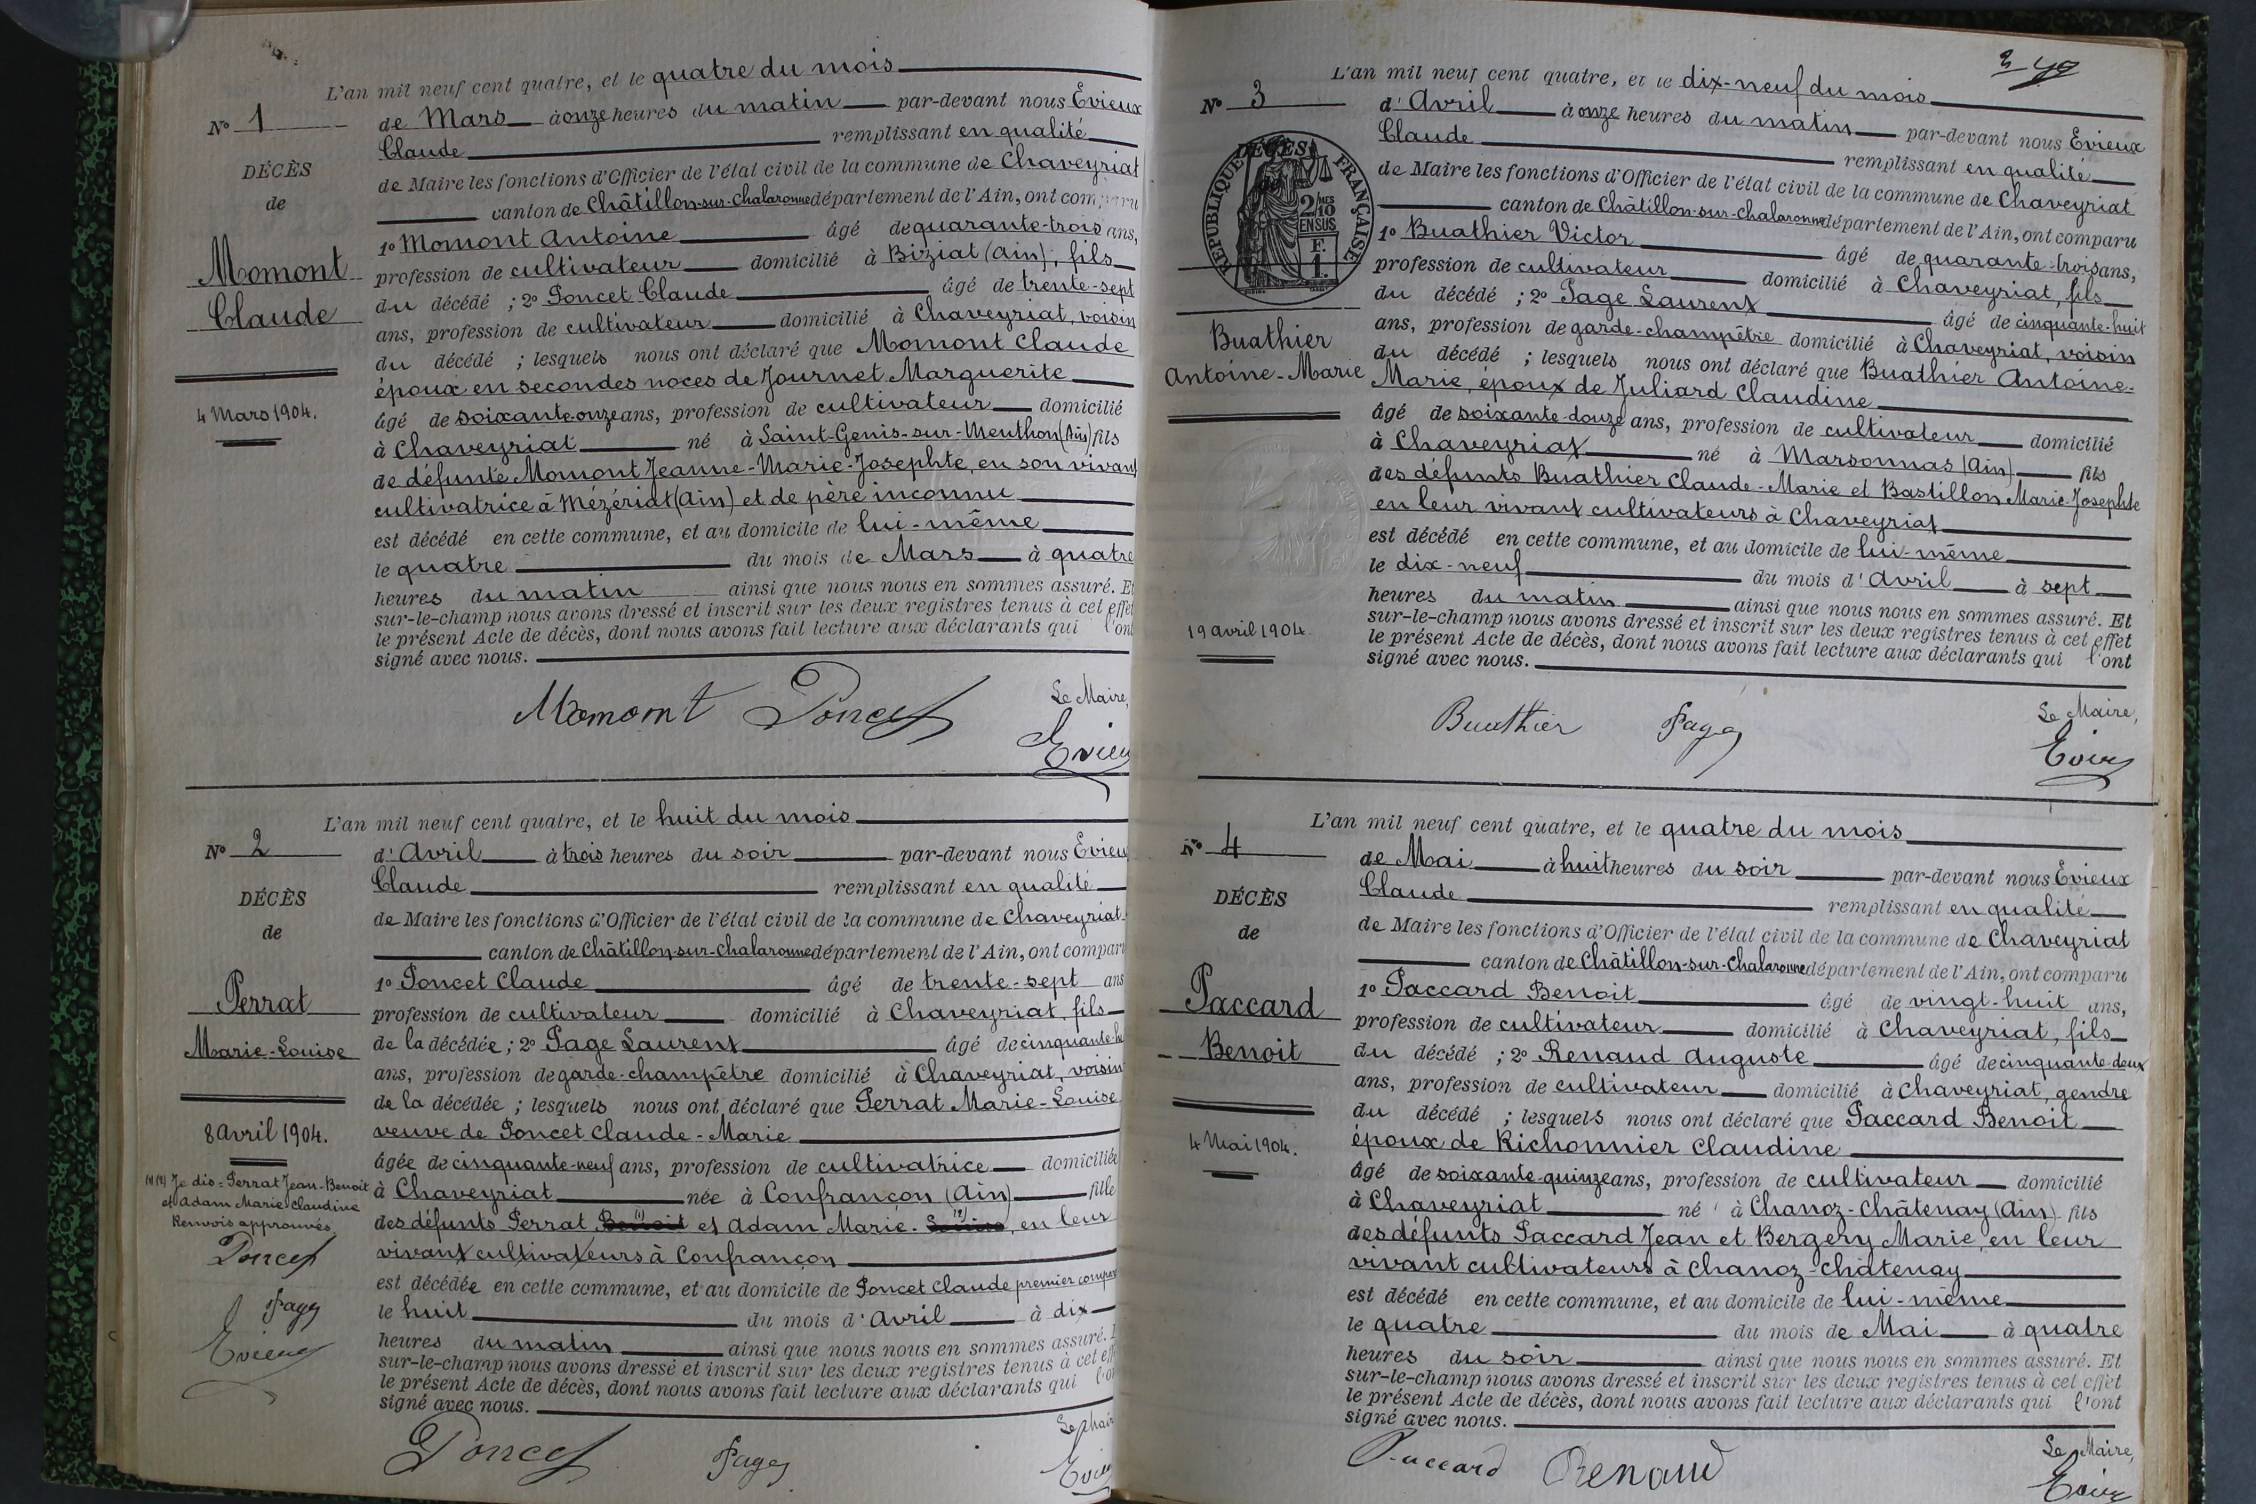 L'an mil neuf cent quatre, et le quatre du mois
N° 1
de Mars à onze heures du matin par-devant nous Evieux
Claude remplissant en qualité
DÉCÈS
de Maire les fonctions d'Officier de l'état civil de la commune de Chaveyriat
de
canton de Châtillon-sur-Chalaronne département de l'Ain, ont comparu
1° Momont Antoine âgé de quarante-trois ans,
Momont
profession de cultivateur domicilié à Biziat (Ain), fils
Claude
du décédé ; 2° Poncet Claude âgé de trente-sept
ans, profession de cultivateur domicilié à Chaveyriat, voisin
du décédé ; lesquels nous ont déclaré que Momont Claude
époux en secondes noces de Journet Marguerite
4 Mars 1904.
âgé de soixante onze ans, profession de cultivateur domicilié
à Chaveyriat né à Saint-Genis-sur-Menthon (Ain) fils
de défunte Momont Jeanne-Marie-Josephte, en son vivant
cultivatrice à Mézériat (Ain) et de père inconnu
est décédé en cette commune, et au domicile de lui-même
le quatre du mois de Mars à quatre
heures du matin ainsi que nous nous en sommes assuré. Et
sur-le-champ nous avons dressé et inscrit sur les deux registres tenus à cet effet
le présent Acte de décès, dont nous avons fait lecture aux déclarants qui l'ont
signé avec nous.
Momont Poncet Le Maire,
Evieux
L'an mil neuf cent quatre, et le huit du mois
N° 2
d'Avril à trois heures du soir par-devant nous Evieu
Claude remplissant en qualité
DÉCÈS
de Maire les fonctions d'Officier de l'état civil de la commune de Chaveyriat
de
canton de Châtillon-sur-Chalaronne département de l'Ain, ont comparu
1° Poncet Claude âgé de trente-sept ans
Perrat
profession de cultivateur domicilié à Chaveyriat, fils
Marie-Louise
de la décédée ; 2° Page Laurent âgé de cinquante-hu
ans, profession de garde-champêtre domicilié à Chaveyriat, voisin
de la décédée ; lesquels nous ont déclaré que Perrat Marie-Louise
8 avril 1904.
veuve de Poncet Claude-Marie
âgée de cinquante-neuf ans, profession de cultivatrice domiciliée
(1) (2) Je dis = Perrat Jean-Benoit
et Adam Marie Claudine
Renvois approuvés
à Chaveyriat née à Confrançon (Ain) fille
des défunts Perrat Benoit (1) et Adam Marie-Louise (2), en leur
vivant cultivateurs à Confrançon
Poncet
Page
Evieux
est décédée en cette commune, et au domicile de Poncet Claude premier compar
le huit du mois d'Avril à dix
heures du matin ainsi que nous nous en sommes assuré.
sur-le-champ nous avons dressé et inscrit sur les deux registres tenus à cet eff
le présent Acte de décès, dont nous avons fait lecture aux déclarants qui l'on
signé avec nous.
Poncet Page Le Mair
Evieu
L'an mil neuf cent quatre, et le dix-neuf du mois
N° 3
d'Avril à onze heures du matin par-devant nous Evieux
Claude remplissant en qualité
DÉCÈS
de
RÉPUBLIQUE FRANÇAISE
2/10 MES
EN SUS
F.
1.
de Maire les fonctions d'Officier de l'état civil de la commune de Chaveyriat
canton de Châtillon-sur-Chalaronne département de l'Ain, ont comparu
1° Buathier Victor âgé de quarante-trois ans,
profession de cultivateur domicilié à Chaveyriat, fils
du décédé ; 2° Page Laurent âgé de cinquante-huit
Buathier
Antoine-Marie
ans, profession de garde-champêtre domicilié à Chaveyriat, voisin
du décédé ; lesquels nous ont déclaré que Buathier Antoine-
Marie, époux de Juliard Claudine
âgé de soixante-douze ans, profession de cultivateur domicilié
à Chaveyriat né à Marsonnas (Ain) fils
des défunts Buathier Claude-Marie et Bastillon Marie-Josephte
en leur vivant cultivateurs à Chaveyriat
est décédé en cette commune, et au domicile de lui-même
le dix-neuf du mois d'Avril à sept
heures du matin ainsi que nous nous en sommes assuré. Et
19 avril 1904.
sur-le-champ nous avons dressé et inscrit sur les deux registres tenus à cet effet
le présent Acte de décès, dont nous avons fait lecture aux déclarants qui l'ont
signé avec nous.
Buathier Page Le Maire,
Evieux
L'an mil neuf cent quatre, et le quatre du mois
N° 4
de Mai à huit heures du soir par-devant nous Evieux
Claude remplissant en qualité
DÉCÈS
de Maire les fonctions d'Officier de l'état civil de la commune de Chaveyriat
de
canton de Châtillon-sur-Chalaronne département de l'Ain, ont comparu
1° Paccard Benoit âgé de vingt-huit ans,
Paccard
profession de cultivateur domicilié à Chaveyriat, fils
Benoit
du décédé ; 2° Renaud Auguste âgé de cinquante-deux
ans, profession de cultivateur domicilié à Chaveyriat, gendre
du décédé ; lesquels nous ont déclaré que Paccard Benoit
4 Mai 1904.
époux de Richonnier Claudine
âgé de soixante-quinze ans, profession de cultivateur domicilié
à Chaveyriat né à Chanoz-Châtenay (Ain) fils
des défunts Paccard Jean et Bergery Marie, en leur
vivant cultivateurs à Chanoz-Châtenay
est décédé en cette commune, et au domicile de lui-même
le quatre du mois de Mai à quatre
heures du soir ainsi que nous nous en sommes assuré. Et
sur-le-champ nous avons dressé et inscrit sur les deux registres tenus à cet effet
le présent Acte de décès, dont nous avons fait lecture aux déclarants qui l'ont
signé avec nous.
Paccard Renaud Le Maire,
Evieux